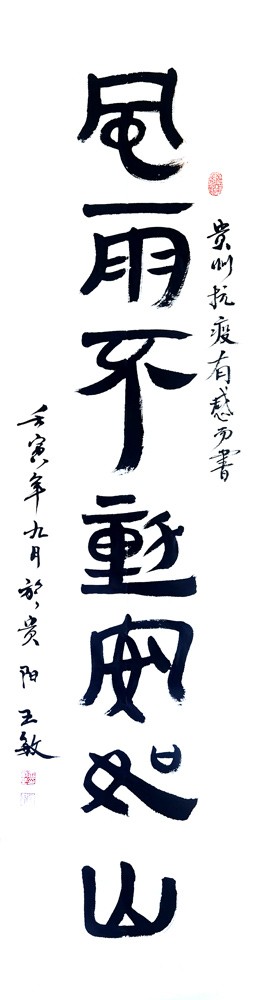 贵州抗疫有感而書
風雨不動安如山
壬寅年九月於贵阳王敏